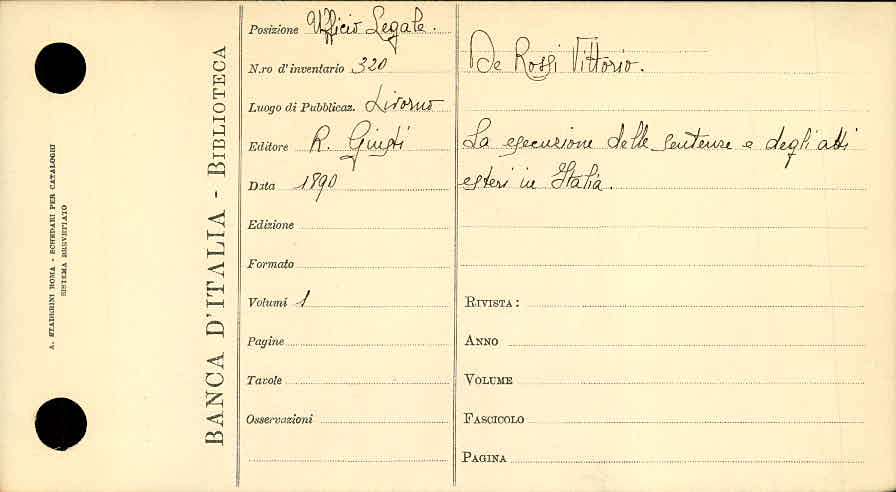 A. STADERINI ROMA - SCHEDARI PER CATALOGHI
SISTEMA BREVETTATO
BANCA D'ITALIA - BIBLIOTECA
Posizione Ufficio Legale.
N.ro d'inventario 320
Luogo di Pubblicaz. Livorno
Editore R. Giusti
Data 1890
Edizione
Formato
Volumi 1
Pagine
Tavole
Osservazioni
De Rossi Vittorio.
La esecuzione delle sentenze e degli atti
esteri in Italia.
RIVISTA:
ANNO
VOLUME
FASCICOLO
PAGINA